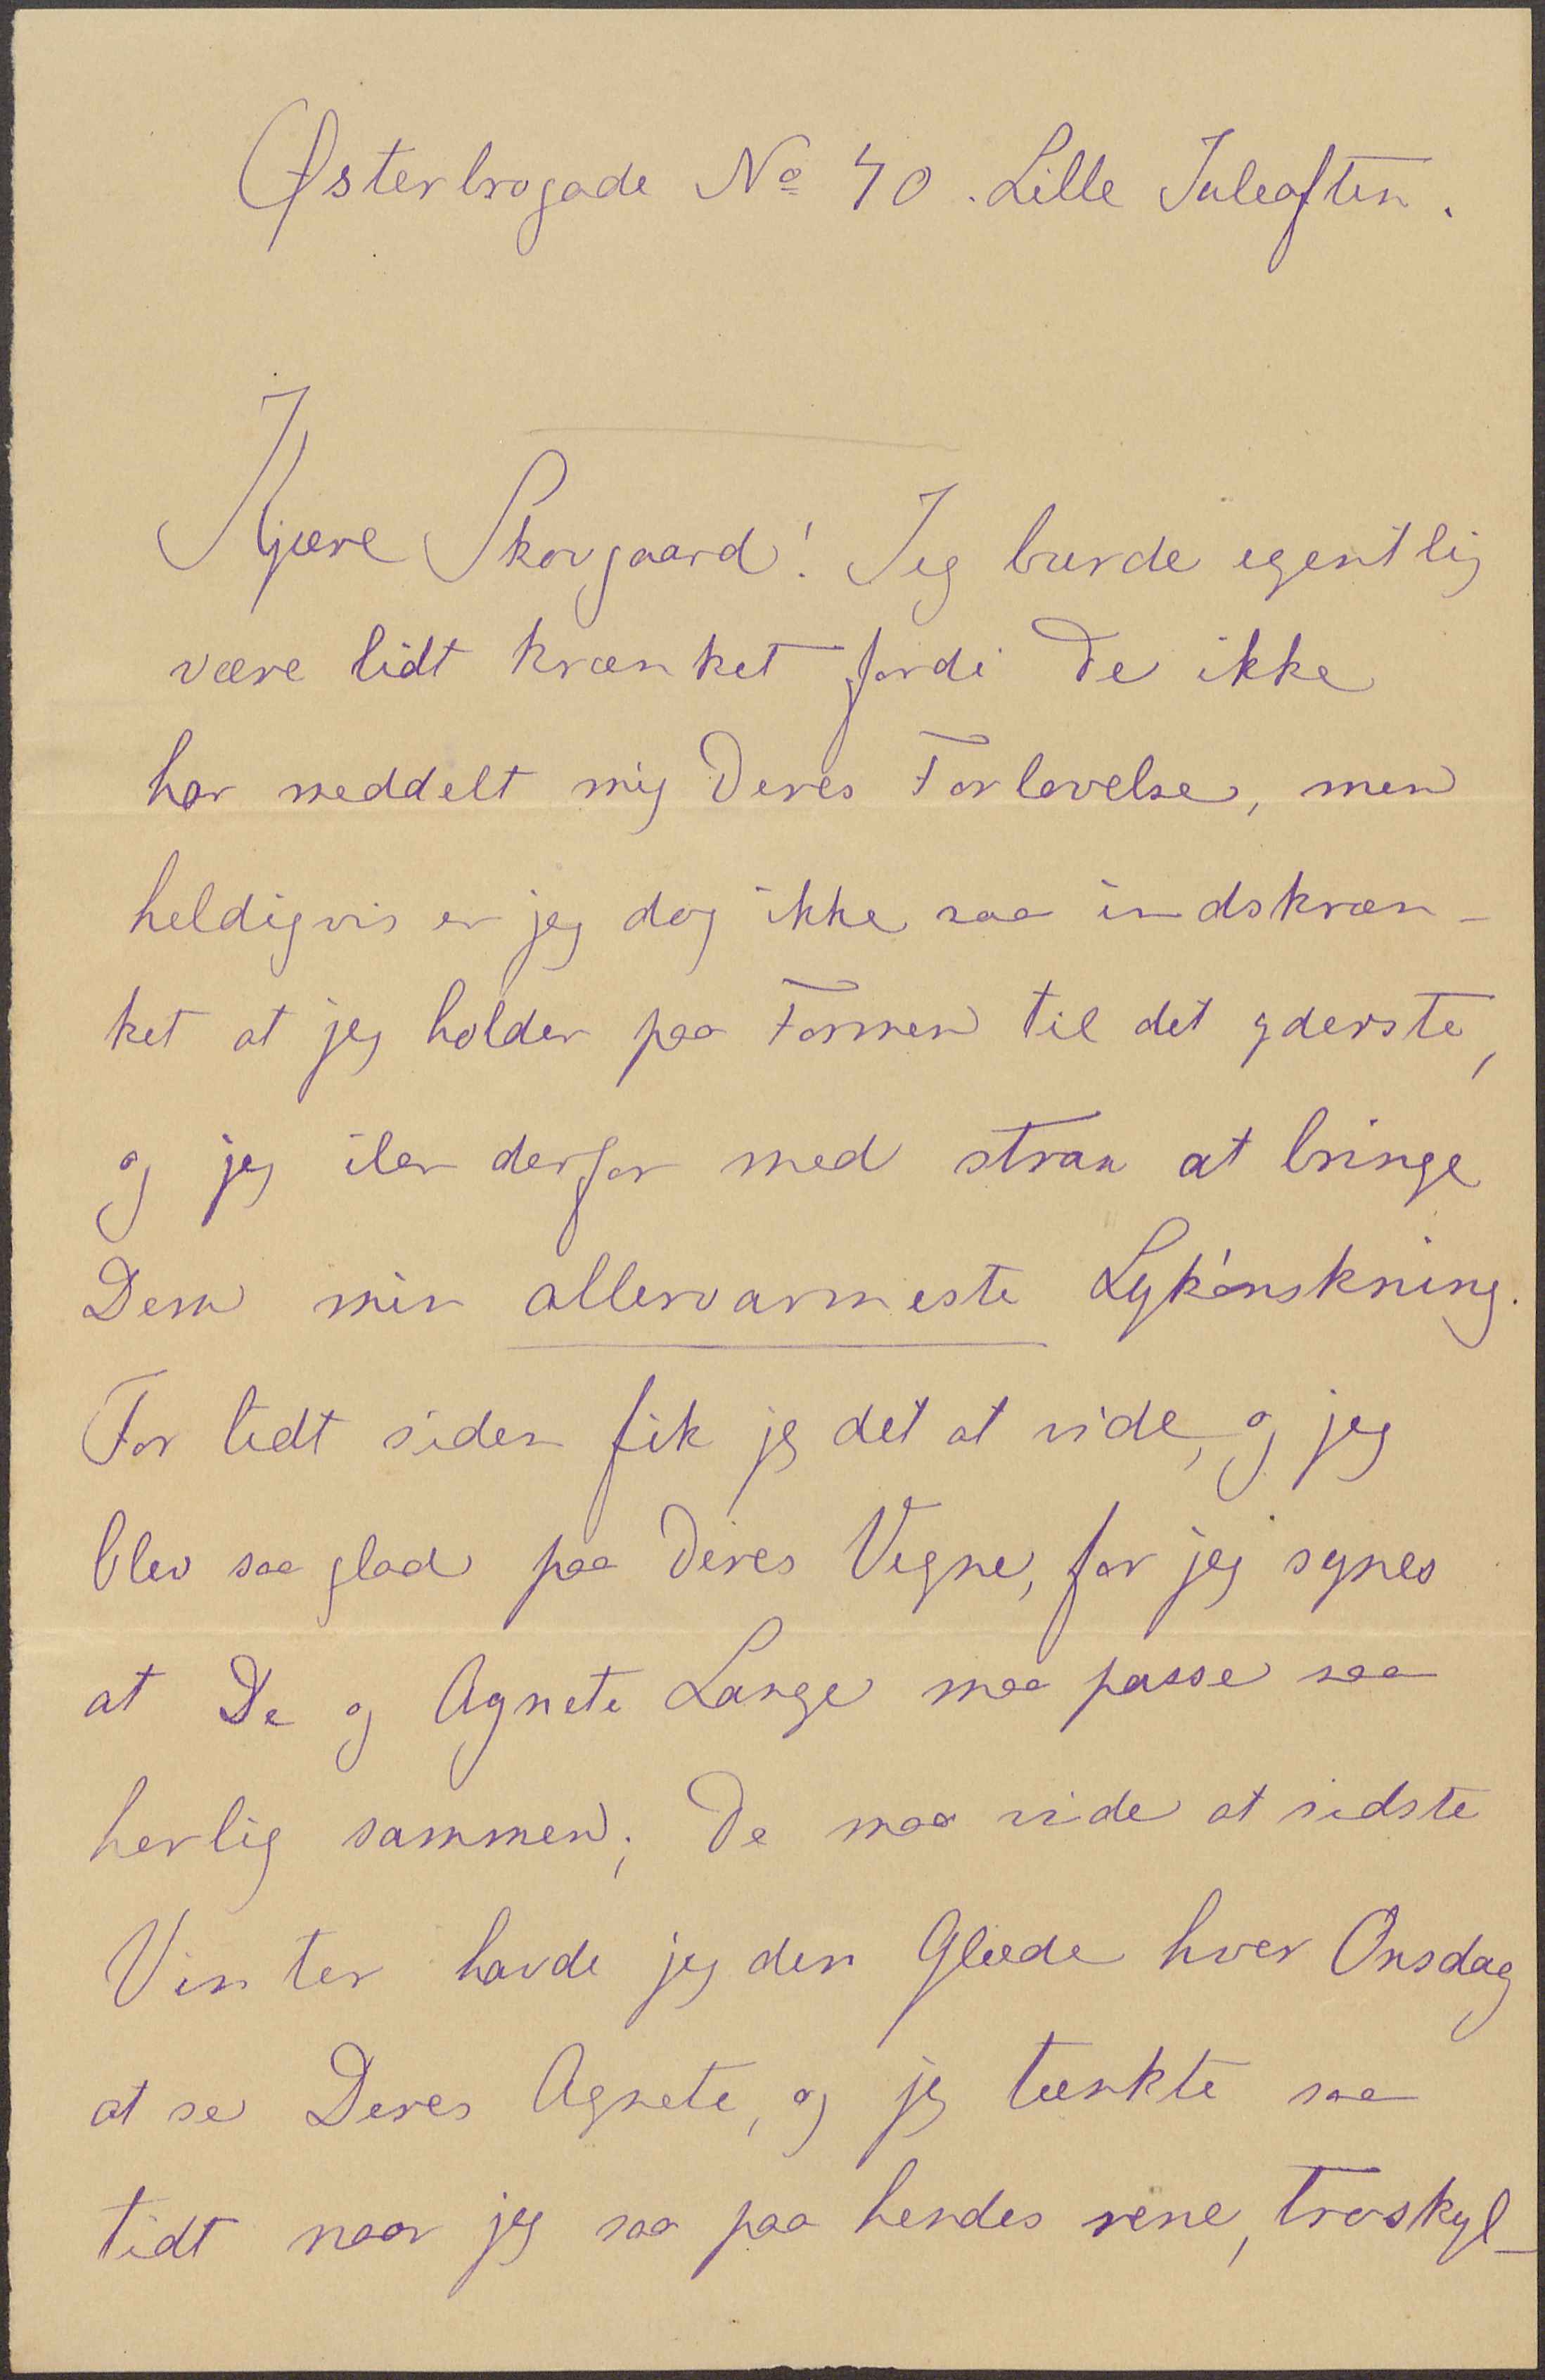 Østerbrogade No 40. Lille Juleaften.
Kjære Skovgaard! Jeg burde egentlig
være lidt krænket fordi De ikke
har meddelt mig Deres Forlovelse, men
heldigvis er jeg dog ikke saa indskræn-
ket at jeg holder paa Formen til det yderste,
og jeg iler derfor med strax at bringe
Dem min allervarmeste Lykønskning.
For lidt siden fik jeg det at vide, og jeg
blev saa glad paa Deres Vegne, for jeg synes
at De og Agnete Lange maa passe saa
herlig sammen; De maa vide at sidste
Vinter havde jeg den Glæde hver Onsdag
at se Deres Agnete, og jeg tænkte saa
tidt naar jeg saa paa hendes rene, troskyl-